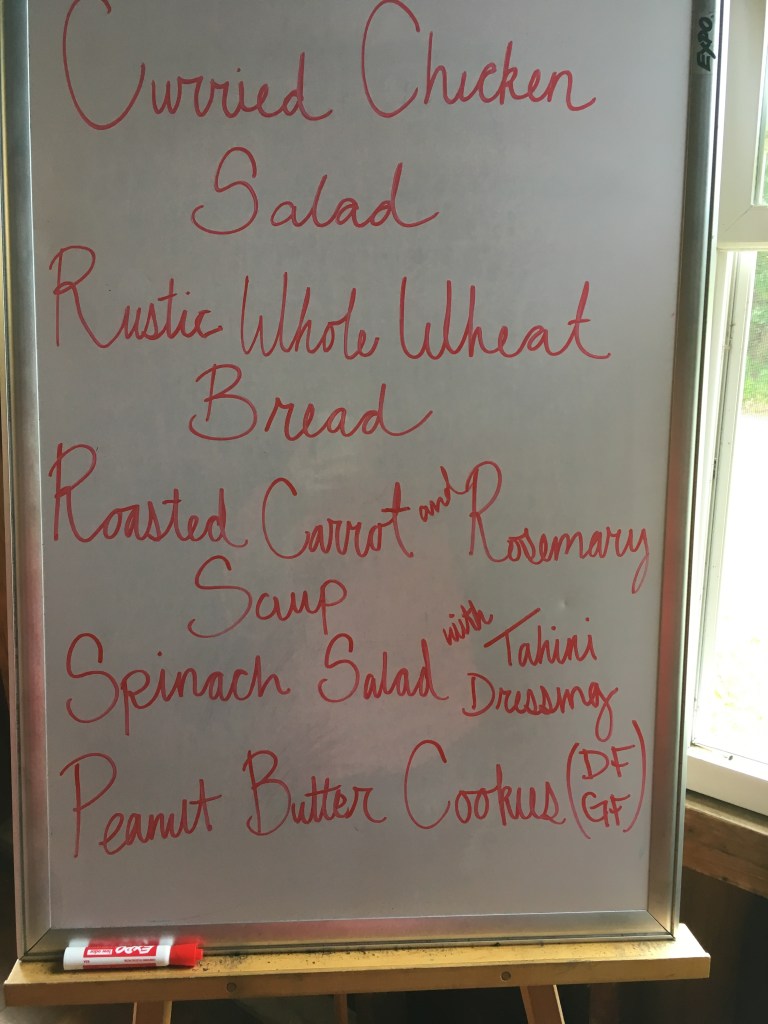 EXPO
Curried Chicken
Salad
Rustic Whole Wheat
Bread
Roasted Carrot and Rosemary
Soup
Spinach Salad with Tahini
Dressing
Peanut Butter Cookies (DF
GF)
EXPO